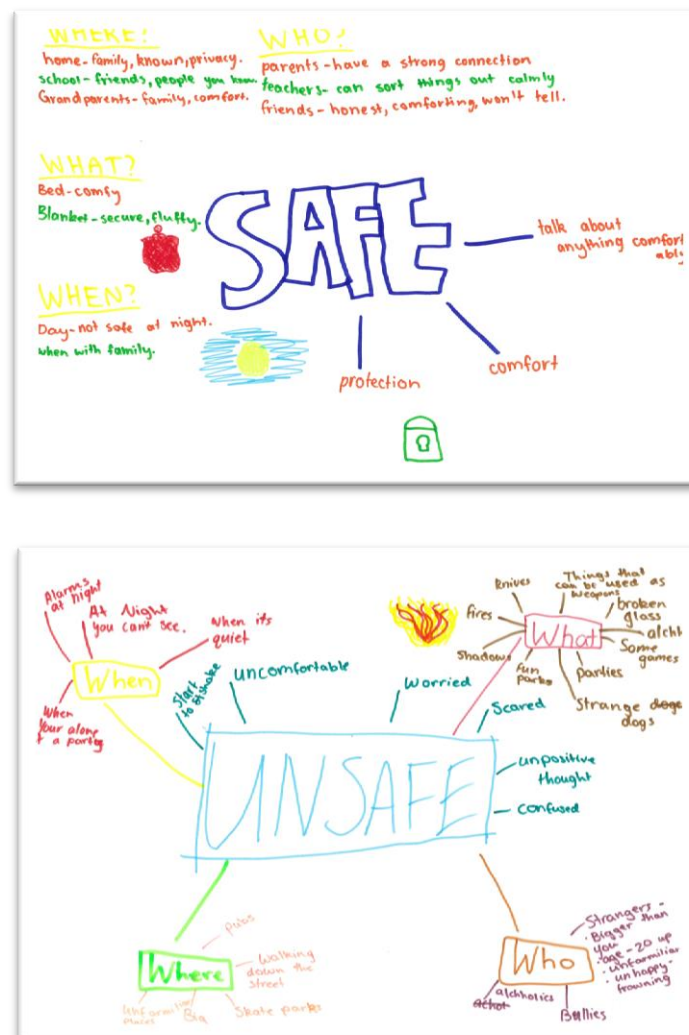 WHERE?
home-family, known, privacy.
school-friends, people you know
Grandparents-family, comfort.
WHO?
parents-have a strong connection
teachers-can sort things out calmly
friends-honest, comforting, won't tell.
WHAT?
Bed-comfy
Blanket-secure, fluffy.
SAFE
talk about
anything comfort
ably
WHEN?
Day-not safe at night.
when with family.
protection
comfort
Alarms
at night
At Night
you can't see.
when its
quiet
When
When
your alone
at a party
Start
to shake
uncomfortable
Worried
Scared
unpositive
thought
confused
UNSAFE
Knives
Things that
can be used as
weapons
broken
glass
fires
What
alcht
Some
games
Shadows
Fun
parks
parties
Strange doge
dogs
pubs
Where
Walking
down the
street
unfamiliar
places
Big
Skate parks
Who
Strangers-
· Bigger than
you
· age-20 up
· unfarmiliar
· unhappy-
frowning
alchholics
achol
Bullies